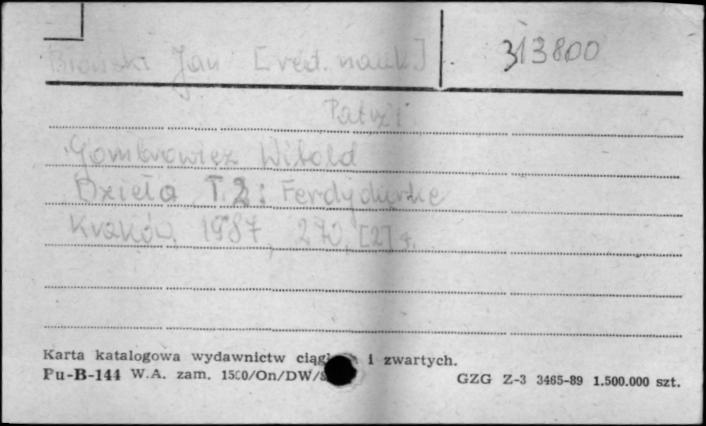 Błoński Jan [red. nauk.] 313800
Patrz:
Gombrowicz Witold
Dzieła T. 2: Ferdydurke
Kraków 1987, 270, [2] s.
Karta katalogowa wydawnictw i zwartych.
Pu-B-144 W.A. zam. 1500/On/DW/ GZG Z-3 3465-89 1.500.000 szt.